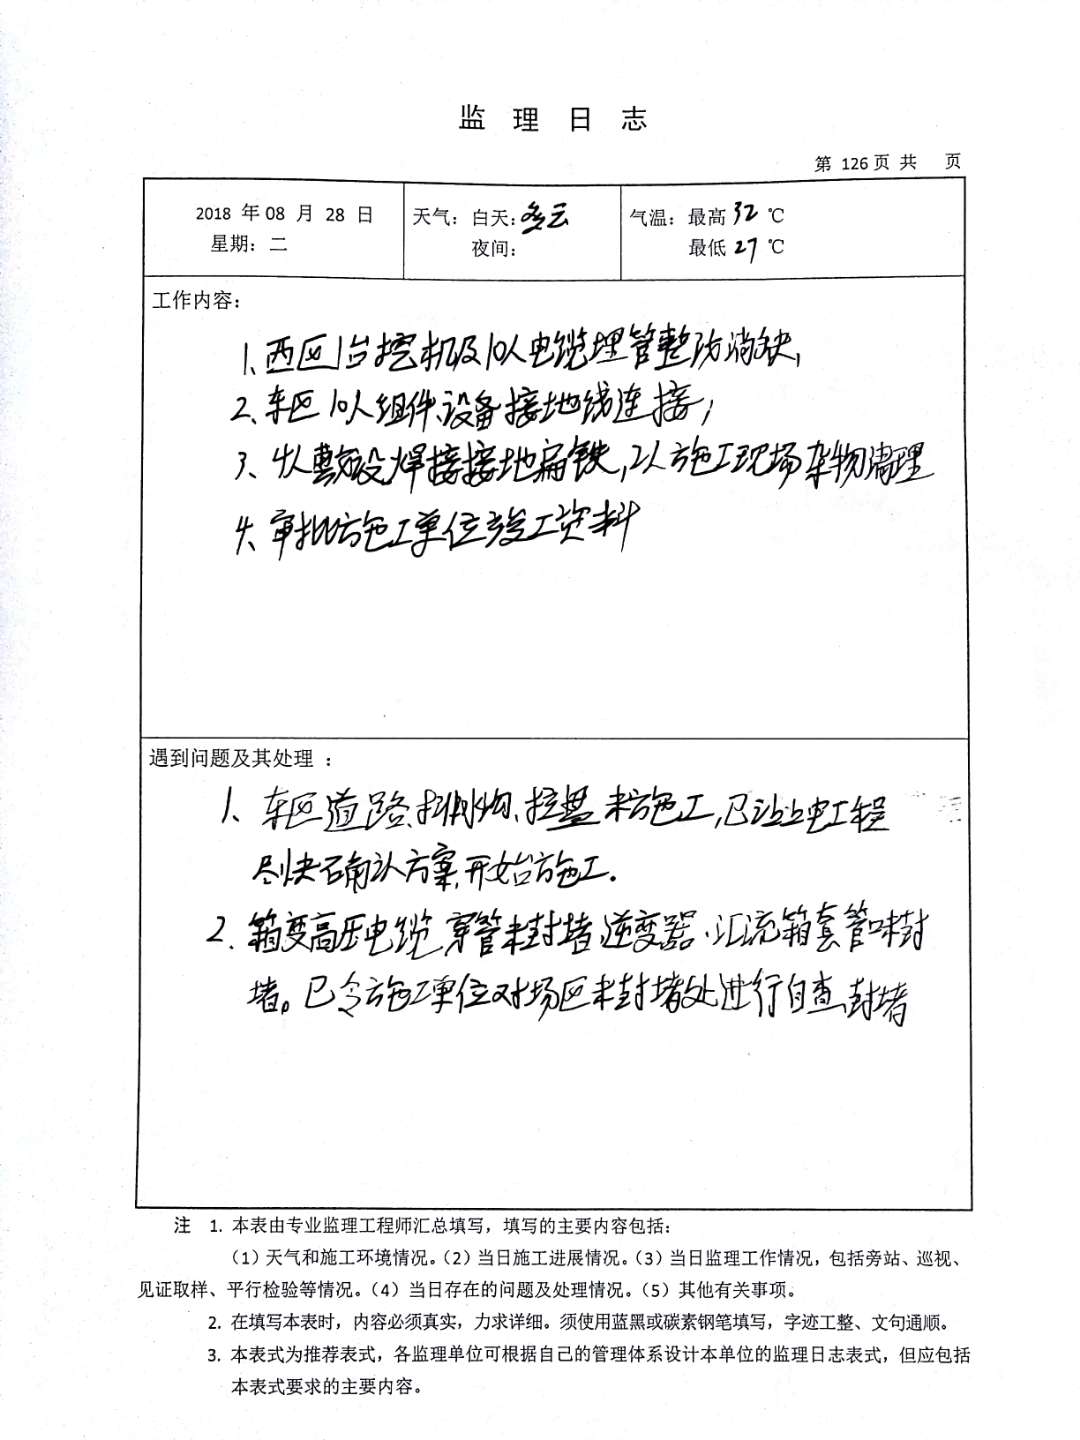 监 理 日 志
第 126 页 共 页
2018 年 08 月 28 日
星期：二
天气：白天：多云
夜间：
气温：最高 32 ℃
最低 27 ℃
工作内容：
1、西区1台挖机及10人电缆埋管整改消缺，
2、东区10人组件、设备接地线连接；
3、4人敷设、焊接接地扁铁，2人施工现场杂物清理
4、审批施工单位竣工资料
遇到问题及其处理 ：
1、东区道路、排水沟、拉基未施工，已让上电工程
尽快确认方案，开始施工.
2、箱变高压电缆穿管未封堵，逆变器、汇流箱套管味封
堵。已令施工单位对场区未封堵处进行自查、封堵
注 1. 本表由专业监理工程师汇总填写，填写的主要内容包括：
（1）天气和施工环境情况。（2）当日施工进展情况。（3）当日监理工作情况，包括旁站、巡视、
见证取样、平行检验等情况。（4）当日存在的问题及处理情况。（5）其他有关事项。
2. 在填写本表时，内容必须真实，力求详细。须使用蓝黑或碳素钢笔填写，字迹工整、文句通顺。
3. 本表式为推荐表式，各监理单位可根据自己的管理体系设计本单位的监理日志表式，但应包括
本表式要求的主要内容。